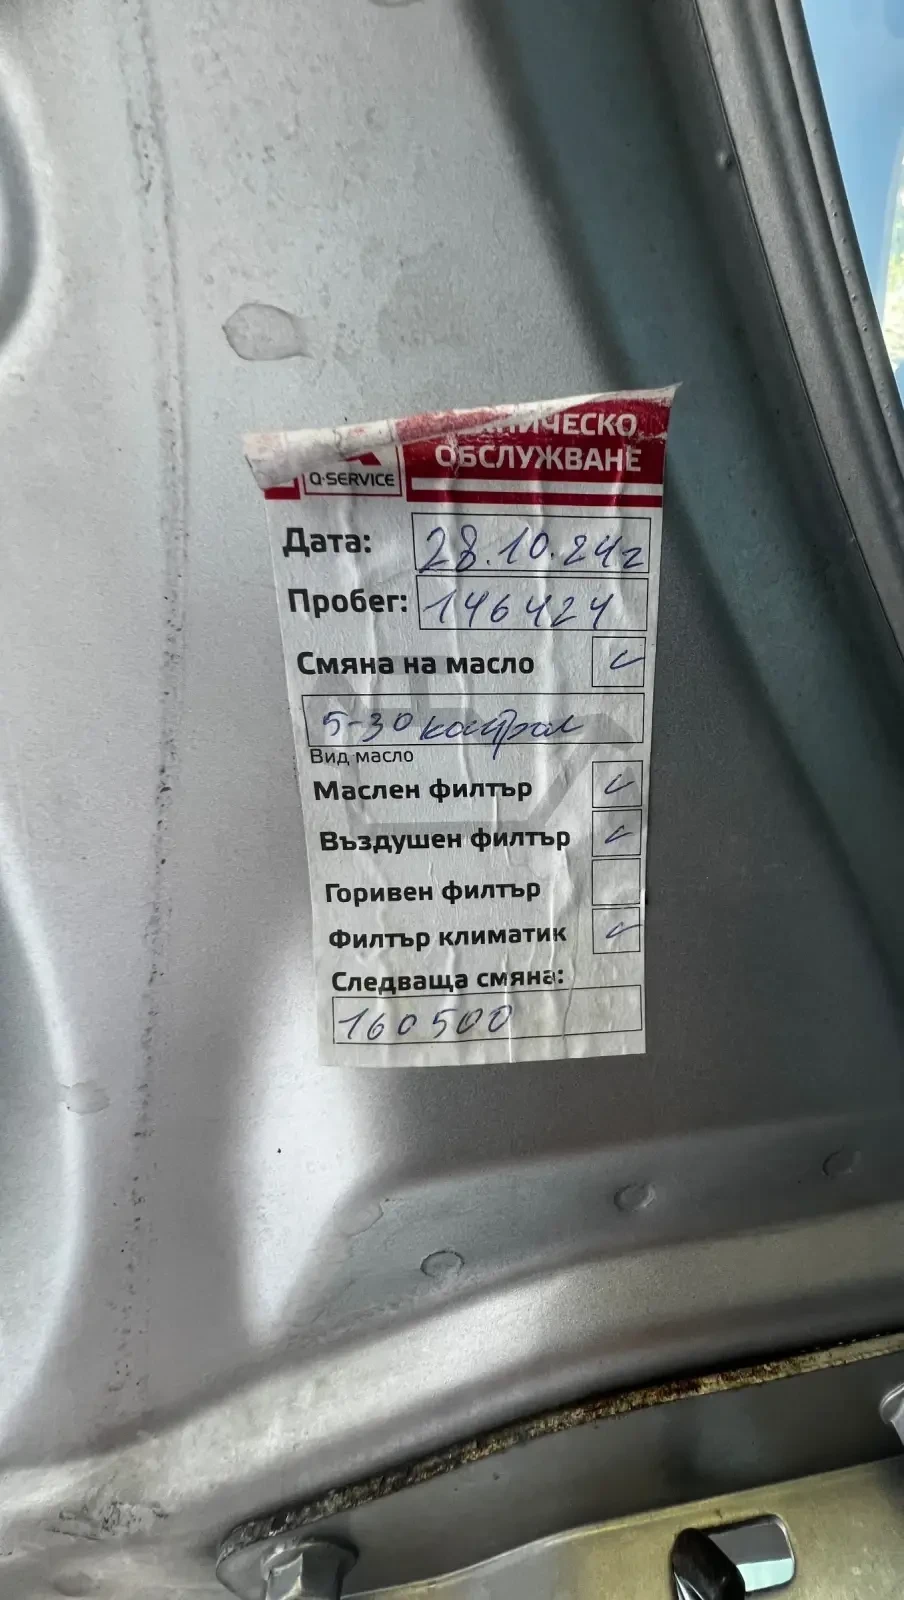 ОБСЛУЖВАНЕ
Q·SERVICE
Дата: 28.10.24г
Пробег: 146424
Смяна на масло ✓
5-30 кастрол
Вид масло
Маслен филтър ✓
Въздушен филтър ✓
Горивен филтър
Филтър климатик ✓
Следваща смяна:
160500